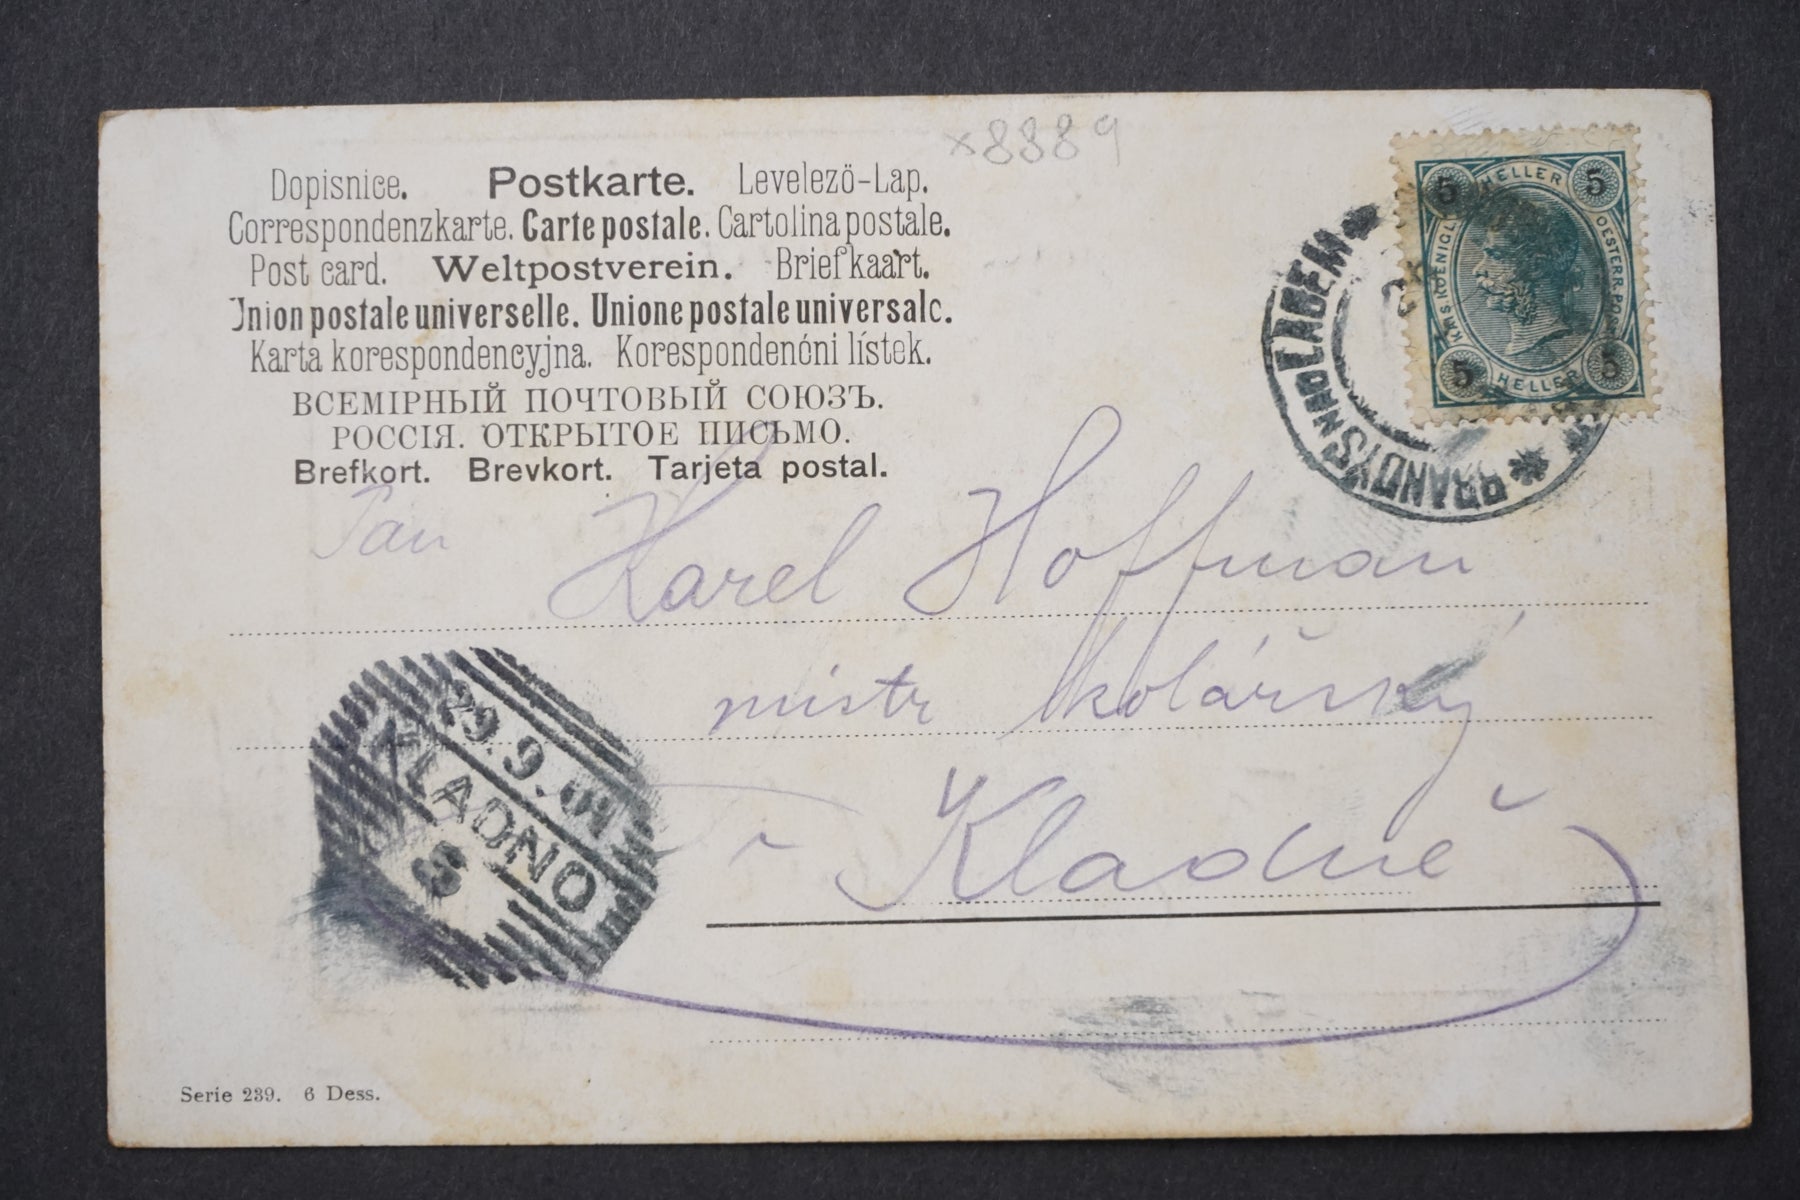 ×8889
Dopisnice. Postkarte. Levelező-Lap.
Correspondenzkarte. Carte postale. Cartolina postale.
Post card. Weltpostverein. Briefkaart.
Union postale universelle. Unione postale universale.
Karta korespondencyjna. Korespondenćni lístek.
ВСЕМІРНЫЙ ПОЧТОВЫЙ СОЮЗЪ.
РОССІЯ. ОТКРЫТОЕ ПИСЬМО.
Brefkort. Brevkort. Tarjeta postal.
5 HELLER 5
KAIS. KOENIGL. OESTERR. POST
5 HELLER 5
BRANDÝS NAD LABEM
Pan Karel Hoffman
mistr kolářský
v Kladně
29.9.01
KLADNO
S
Serie 239. 6 Dess.